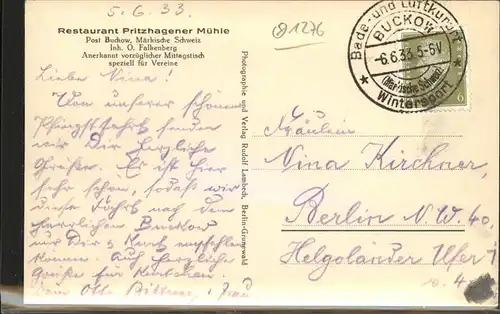 5.6.33.
Restaurant Pritzhagener Mühle
Post Buckow, Märkische Schweiz
Inh. O. Falkenberg
Anerkannt vorzüglicher Mittagstisch
speziell für Vereine
Liebe Nina!
Von unserer schönen
Pfingstfahrt senden
wir Dir herzliche
Grüße. Es ist hier
sehr schön, sodaß wir
diese Fahrt nach dem
herrlichen Buckow
nur Dir empfehlen
können. Auf herzliche
Grüße für
Dein Otto
Photographie und Verlag Rudolf Lambeck, Berlin-Grunewald
1276
Bade- und Luftkurort
BUCKOW
-6.6.33.5-6V
(Märkische Schweiz)
Wintersport
6
Fräulein
Nina Kirchner,
Berlin N.W. 40.
Helgoländer Ufer